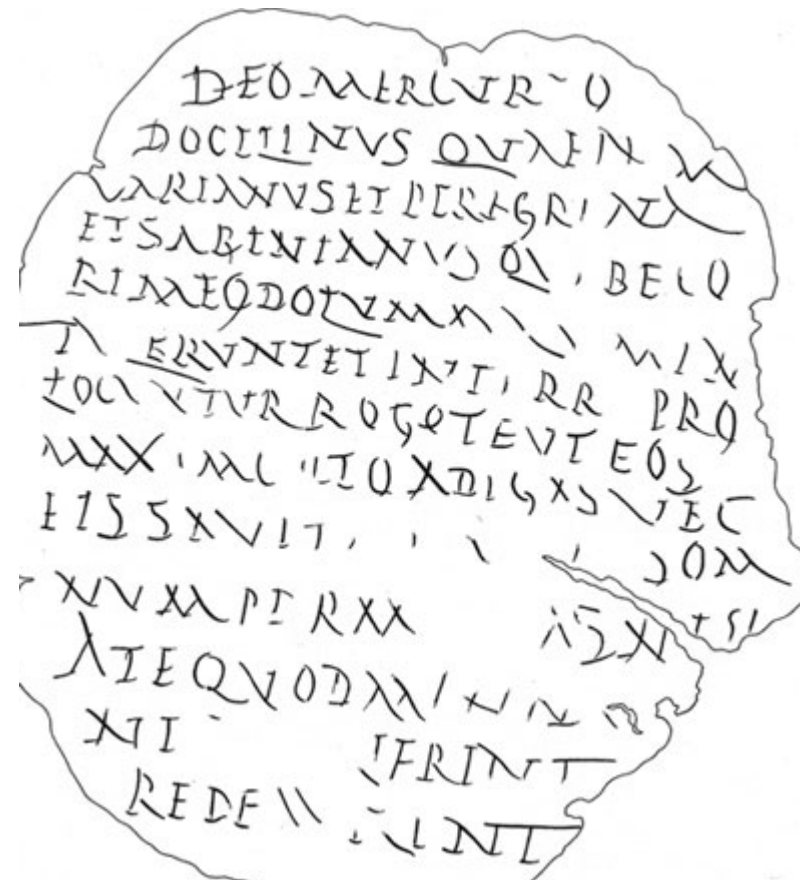 DEO MERCVRIO
DOCILINVS QVAENM
VARIANVS ET PEREGRINA
ET SABINIANVS QVI PECO
RI MEO DOLVM MALVM IN
ERVNT ET PRO
LOCVNTVR ROGO TE VT EOS
MAXIMO LETO ADIGAS NEC
EIS SANIT SOM
NVM PERM NISI
A TE QVOD MIHI
NI ERINT
REDEM RINT